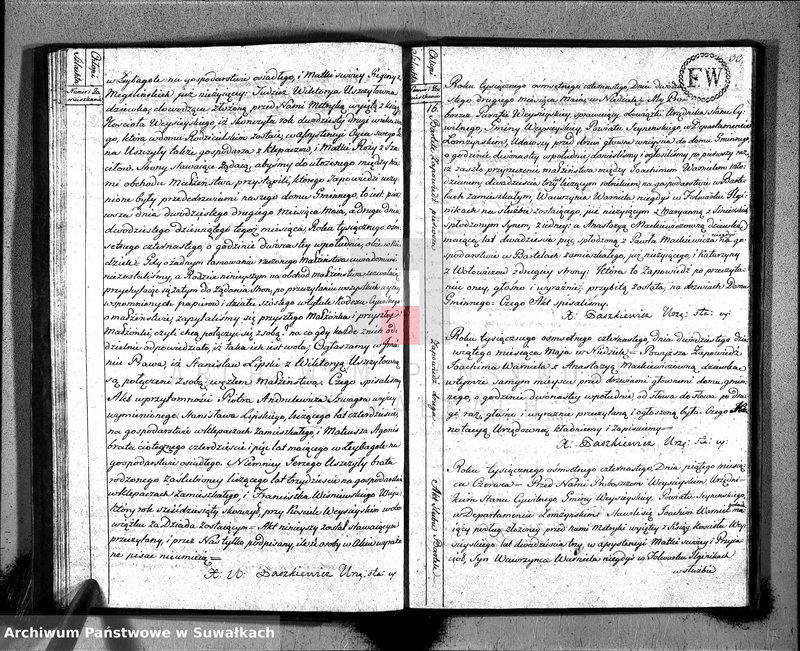 Chłopi
Szlachta
Numer i Za
mieszkanie
w Łeybagole na gospodarstwie osiadłego, i Matki swoiey Reginy z
już nieżyiącey. Tudzież Wiktorya Uszczyłowna
dziewka, dowodząca złożoną przed Nami Metryką wyiętą z Ksiąg
Kościoła Weysieyskiego, iż skończyła rok dwudziesty drugi wieku swe
go, która w domu Rodzicielskim zostaie w assystencyi Oyca swoiego Ja
na Uszczyły także gospodarza z Kłepacz i Matki Rozy z
Strony stawaiące żądaią, abyśmy do ułożonego między nie
mi obchodu Małżeństwa, przystąpili, którego Zapowiedzi uczy
nione były przededrzwiami naszego domu Gminnego, to iest: pier
wsza dnia dwudziestego drugiego miesiąca Maia, a druga dnia
dwudziestego dziewiątego tegoż miesiąca, Roku tysiącznego os
setnego czternastego, o godzinie dwunastey w południe, obie w Nie
dziele. Gdy o żadnym tamowaniu rzeczonego Małżeństwa uwiadomieni
nie zostaliśmy, a Rodzice ninieyszym na obchod małżeństwa zezwalaią
przychylaiąc się zatym do żądania Stron, po przeczytaniu wszystkich wyżey
wspomnionych papierow i działu szóstego w tytule Kodexu Cywilnego
o Małżeństwie, zapytaliśmy się przyszłego Małżonka i przyszłey
Małżonki, czyli chcą połączyć się z sobą? na co gdy każde z nich od
dzielnie odpowiedziało, iż taka ich iest wola, Ogłaszamy w Imie
niu Prawa, iż Stanisław Lipski z Wiktoryą Uszczyłowną
są połączeni z sobą węzłem Małżeństwa. Czego spisaliśmy
Akt w przytomności Piotra Andrulewicza Szwagra wyżey
wymienionego Stanisława Lipskiego, liczącego lat czterdzieści
na gospodarstwie w Klepaczach zamieszkałego, i Mateusza
brata ciotecznego czterdzieści i pięć lat maiącego w Łeybagole na
gospodarstwie osiadłego. Niemniey Jerzego Uszczyły brata
rodzonego zaślubioney liczącego lat trzydzieści na gospodarstwie
w Klepaczach zamieszkałego, i Franciszka Wiśniewskiego Wuja
który rok sześćdziesiąty skończył, przy Kościele Weysieyskim w obo
wiązku za Dziada zostaiącego – Akt ninieyszy został stawaiącym
przeczytany, i przez Nas tylko podpisany, ileże osoby w Akcie wyrażo
ne pisać nieumieią
X. W. Paszkiewicz Urz: sta: cy
FW
Chłopi
Szlachta
Numer i Za
mieszkanie
16.
Bartele
Zapowiedź pierwsza
Roku tysiącznego osmsetnego czternastego, Dnia dwudzie
stego drugiego miesiąca Maia, w Niedzielę – My Pro
boszcz Parafii Weysieyskiey, sprawuiący obowiązki Urzędnika Stanu Cy
wilnego, Gminy Weysieyskiey, Powiatu Seyneńskiego, w Departamencie
Łomżyńskim, Udawszy przed drzwi główne wniyścia do domu Gminnego,
o godzinie dwunastey w południe, donieśliśmy i ogłosiliśmy po pierwszy raz,
iż zaszło przyrzeczenie małżeństwa między Joachimem Warnielem
dwadzieścia trzy liczącym rolnikiem na gospodarstwie w Barte
lach zamieszkałym, Wawrzyńca Warniela niegdyś w Folwarku Ilgi
nikach na służbie zostaiącego, iuż nieżyiącym z Maryanną z
spłodzonym Synem, z iedney; a Anastazyą Mackiewiczowną dziewką
maiącą lat dwadzieścia pięć, spłodzoną z Pawła Mackiewicza niegdyś na go
spodarstwie w Bartelach zamieszkałego, już nieżyiącego, i Katarzyny
z Wołowiczow z drugiey strony: Która to Zapowiedź po przeczyta
niu oney, głośno i wyraźnie, przybitą została, na drzwiach Domu
Gminnego: Czego Akt spisaliśmy.
X. Paszkiewicz Urz: sta: cy
Zapowiedź druga
Roku tysiącznego osmsetnego czternastego dnia dwudziestego dzie
wiątego miesiąca Maja w Niedzielę – Powyższa Zapowiedź
Joachima Warniela z Anastazyą Mackiewiczowną, dziewką
w tymże samym mieyscu przed drzwiami głownemi domu gmin
nego, o godzinie dwunastey w południe, od słowa do słowa po dru
gi raz głośno i wyraźnie przeczytaną i ogłoszoną była. Czego
notacyą Urzędową kładniemy i zapisuiemy –
X. Paszkiewicz Urz: sta: cy
Akt Slubu
Bartele
Roku tysiącznego osmsetnego czternastego, Dnia piątego miesią
ca Czerwca – Przed Nami Proboszczem Weysieyskim, Urzędni
kiem Stanu Cywilnego Gminy Weysieyskiey, Powiatu Seyneńskiego,
w Departamencie Łomżyńskim Stawił się Joachim Warniel
iący podług złożoney przed nami Metryki wyiętey z Ksiąg Kościoła Wey
sieyskiego lat dwadzieścia trzy, w assystencyi Matki swoiey i Przyia
cioł, Syn Wawrzyńca Warniela niegdyś w Folwarku Ilginikach
w służbie
Archiwum Państwowe w Suwałkach